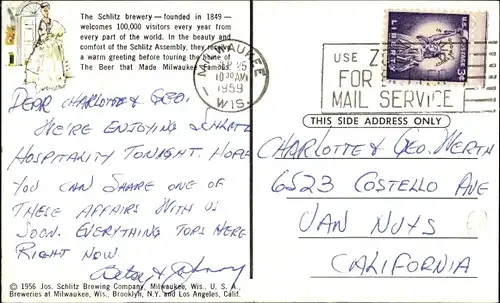 The Schlitz brewery — founded in 1849 —
welcomes 100,000 visitors every year from
every part of the world. In the beauty and
comfort of the Schlitz Assembly, they receive
a warm greeting before touring the home of
The Beer that Made Milwaukee Famous
DEAR CHARLOTTE & GEO.
WE'RE ENJOYING SCHLITZ
HOSPITALITY TONIGHT. HOPE
YOU CAN SHARE ONE OF
THESE AFFAIRS WITH US
SOON. EVERYTHING TOPS HERE
RIGHT NOW.
© 1956 Jos. Schlitz Brewing Company, Milwaukee, Wis., U. S. A.
Breweries at Milwaukee, Wis., Brooklyn, N.Y. and Los Angeles, Calif.
MILWAUKEE
10 30 AM
1959
WIS.
USE
FOR
MAIL SERVICE
LIBERTY
U.S. POSTAGE
3¢
THIS SIDE ADDRESS ONLY
CHARLOTTE & GEO. WERTH
6523 COSTELLO AVE
VAN NUYS
CALIFORNIA